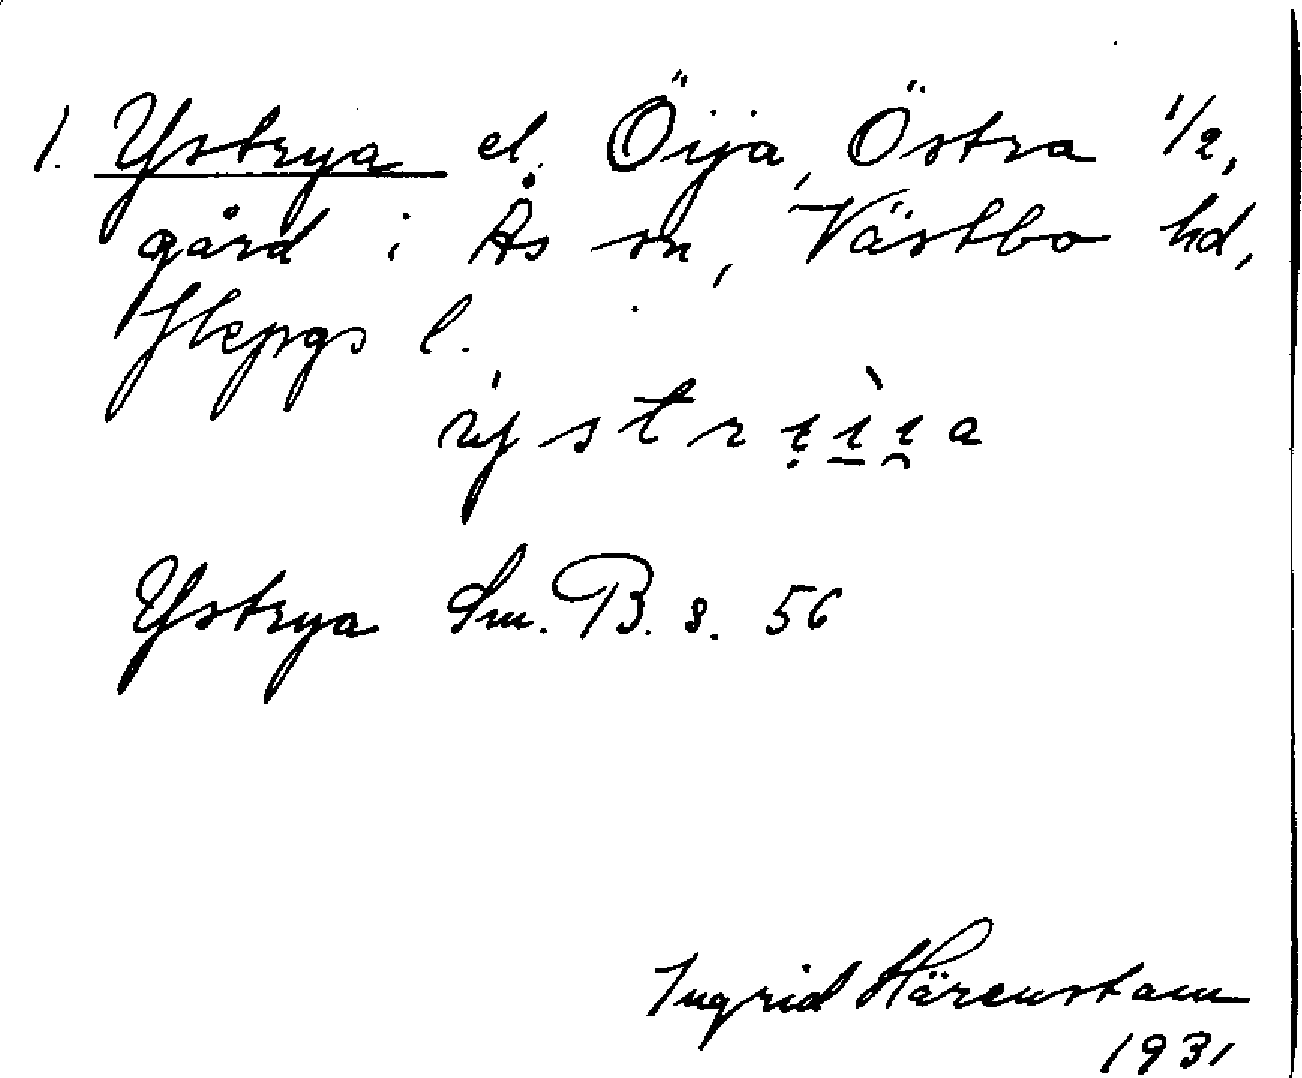 1. Ystrya el. Öija, Östra 1/2,
gård i Ås sn, Västbo hd,
Jkpgs l.
Ystrya Sm. B. s. 56
Ingrid Härenstam
1931